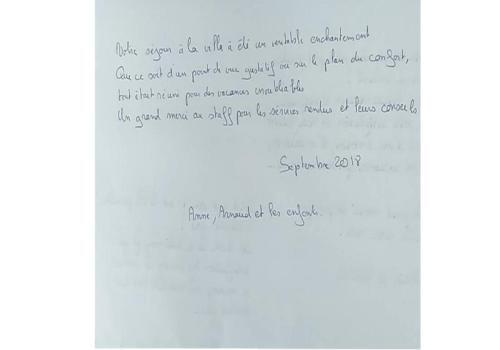 Notre séjour à la villa à été un véritable enchantement
Que ce soit d'un point de vue gustatif ou sur le plan du confort,
tout était réuni pour des vacances inoubliables
Un grand merci au staff pour les services rendus et leurs conseils
Septembre 2018
Anne, Arnaud et les enfants.